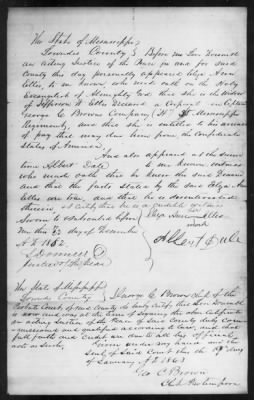 The State of Mississippi
Lowndes County } Before me
an acting Justice of the Peace in and for said
County this day personally appeared Eliza Ann
Ellis, who made oath on the Holy
Evangelist of Almighty God that she is the Widow
of Jefferson W Ellis Deceased a Corporal in Captain
George C Brown Company, H Mississippi
Regiment, and that she is entitled to the amount
of pay that was due him from the Confederate
States of America.
And also appeared at the same
time Albert Dale to me known
who made oath that he knew the said Deceased
and that the facts stated by the said Eliza Ann
Ellis are true, and that he is disinterested
Sworn to & Subscribed before Eliza Ann Ellis
me this day of December mark
A D 1862. Albert Dale
Justice of the Peace
The State of Mississippi
Lowndes County } George C Brown Clk of the
Probate Court of said County do
is now and was at the time of signing the above Certificate
an acting Justice of the Peace of said County duly Com-
missioned and qualified according to law, and that
full faith and credit are due to all his official
acts as such. Given under my hand and the
Seal of said Court this the day
of January A D 1863
Geo C Brown
Clk